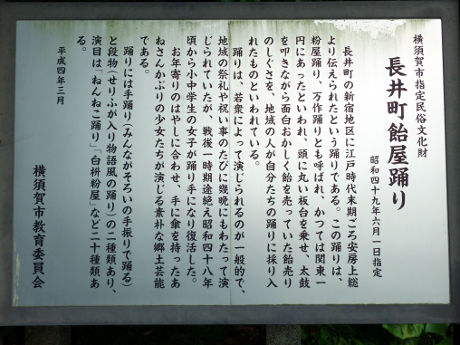 横須賀市指定民俗文化財
長井町飴屋踊り
昭和四十九年六月一日指定
長井町の新宿地区に江戸時代末期ごろ安房上総
より伝えられたという踊りである。この踊りは、
粉屋踊り、万作踊りとも呼ばれ、かつては関東一
円にあったといわれ、頭に丸い板台を乗せ、太鼓
を叩きながら面白おかしく飴を売っていた飴売り
のしぐさを、地域の人が自分たちの踊りに採り入
れたものといわれている。
踊りは、若衆によって演じられるのが一般的で、
地域の祭礼や祝い事のたびに幾晩にもわたって演
じられていたが、戦後一時期途絶え昭和四十八年
頃から小中学生の女子が踊り手になり復活した。
お年寄りのはやしに合わせ、手に傘を持ったあ
ねさんかぶりの少女たちが演じる素朴な郷土芸能
である。
踊りには手踊り(みんながそろいの手振りで踊る)
と段物(せりふが入り物語風の踊り)の二種類あり、
演目は「ねんねこ踊り」、「白拚粉屋」など二十種類あ
る。
平成四年三月
横須賀市教育委員会